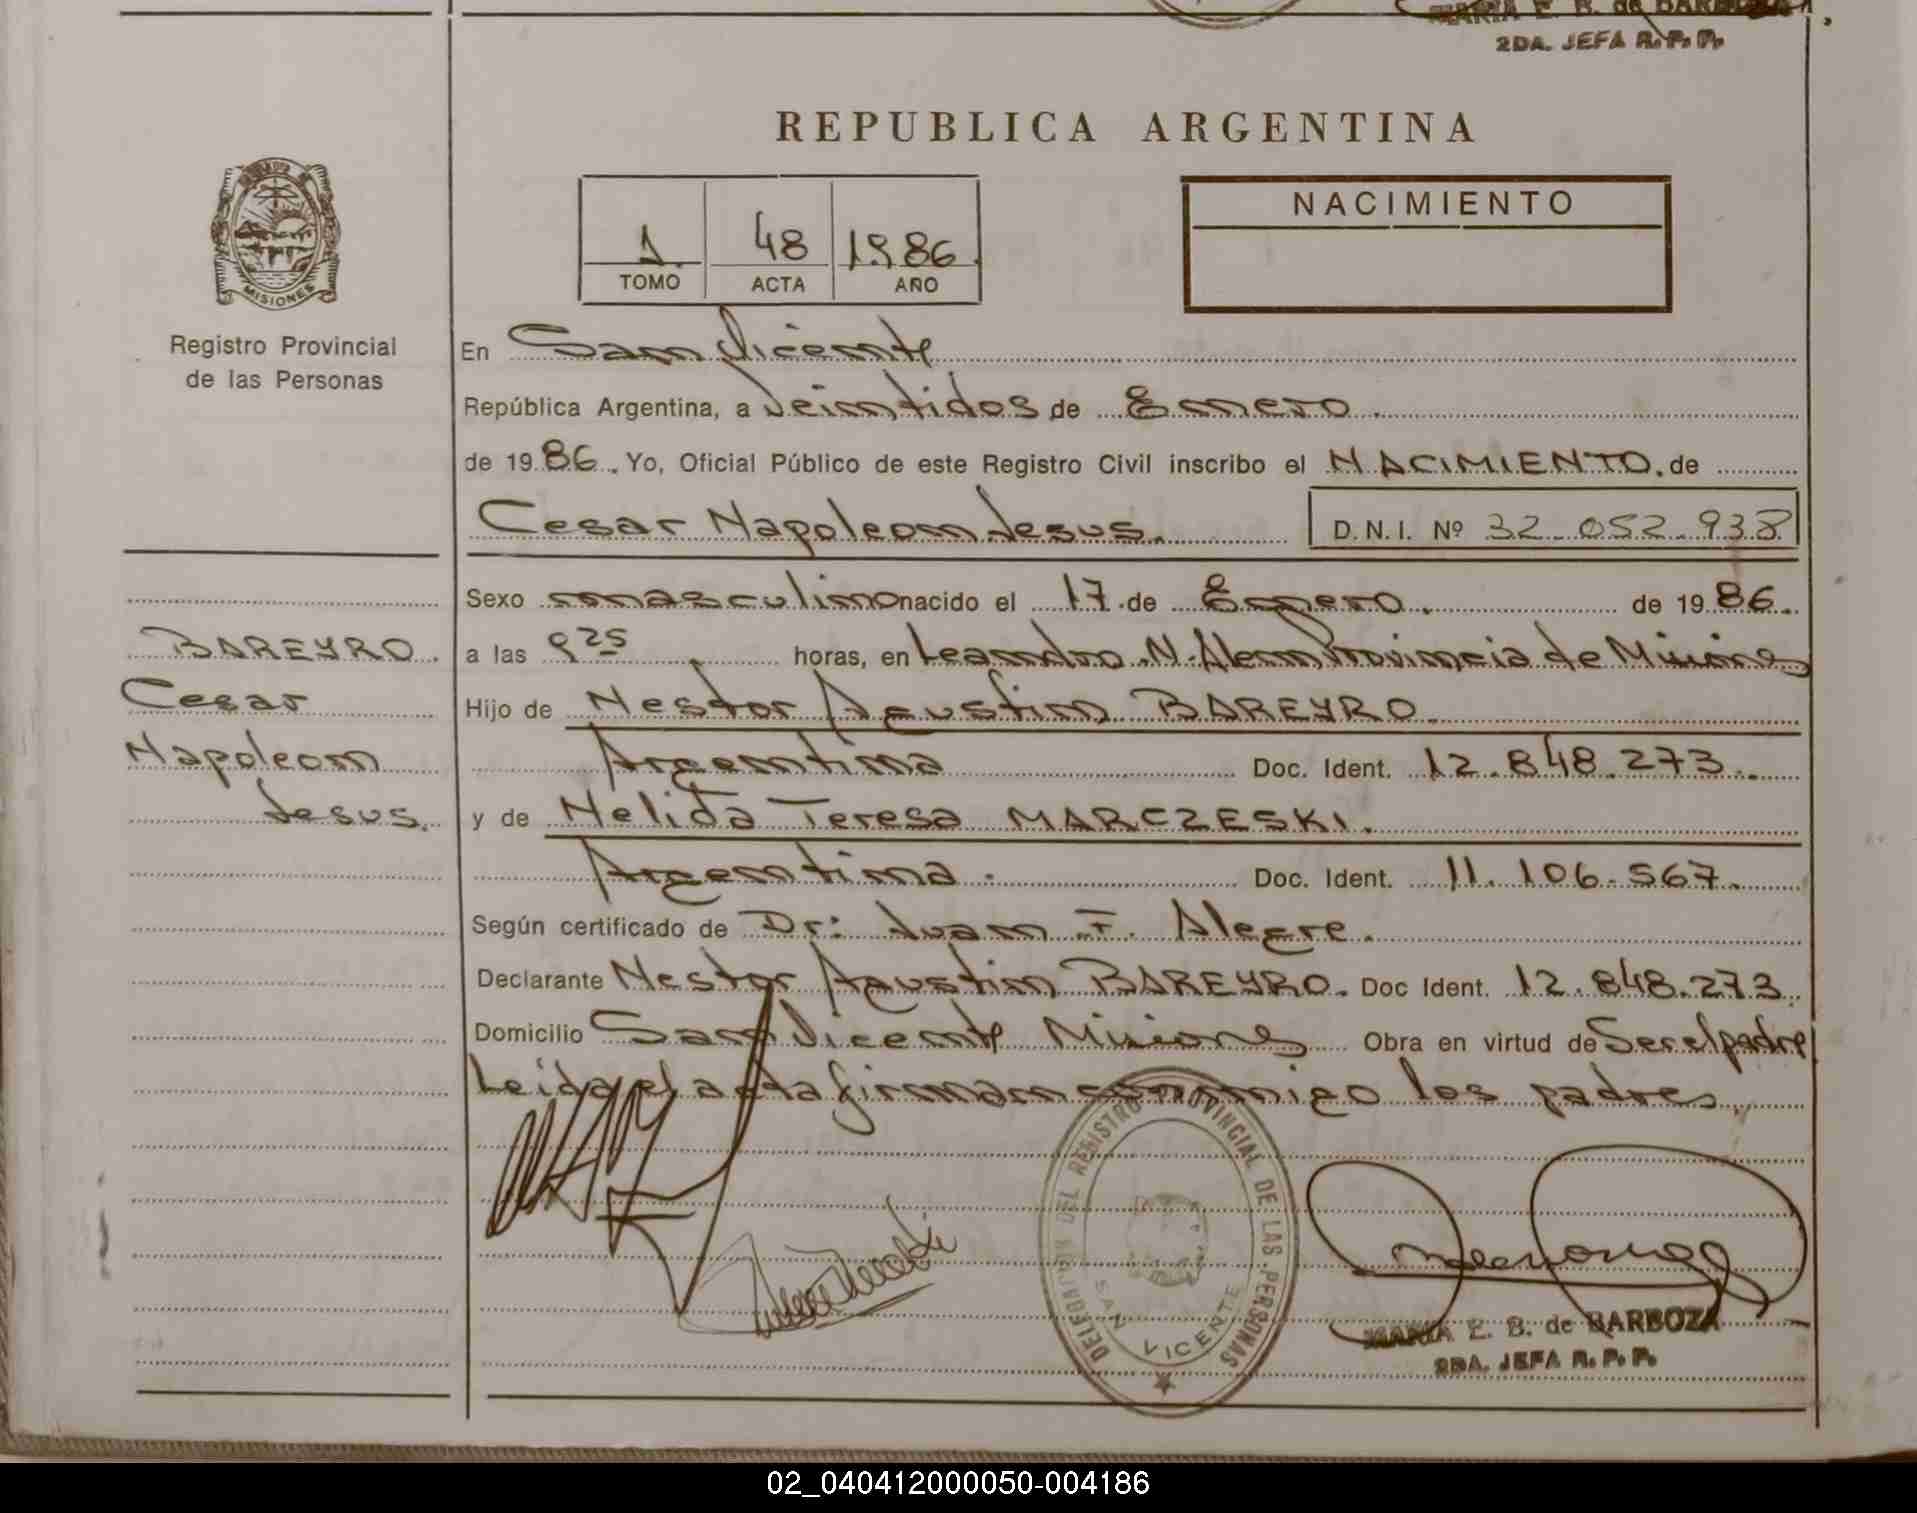 MARIA E. B. de BARBOZA
2DA. JEFA R. P. P.
REPUBLICA ARGENTINA
NACIMIENTO
1 48 1986
TOMO ACTA AÑO
MISIONES
Registro Provincial
de las Personas
En San Vicente
República Argentina, a Veintidos de Enero
de 1986. Yo, Oficial Público de este Registro Civil inscribo el NACIMIENTO. de
Cesar Napoleon Jesus. D.N.I. Nº 32.052.938
Sexo masculino nacido el 17 de Enero. de 1986.
a las 9 25 horas, en Leandro N. Alem Provincia de Misiones
Hijo de Nestor Agustin BAREYRO.
Argentina Doc. Ident. 12.848.273.
y de Nelida Teresa MARCZESKI.
Argentina. Doc. Ident. 11.106.567.
Según certificado de Dr: Juan F. Alegre.
Declarante Nestor Agustin BAREYRO. Doc Ident. 12.848.273.
Domicilio San Vicente Misiones Obra en virtud de Ser el padre
Leida el acta firman conmigo los padres.
BAREYRO.
Cesar
Napoleon
Jesus.
DELEGACION DEL REGISTRO PROVINCIAL DE LAS PERSONAS
SAN VICENTE
MARIA E. B. de BARBOZA
2DA. JEFA R. P. P.
02_040412000050-004186